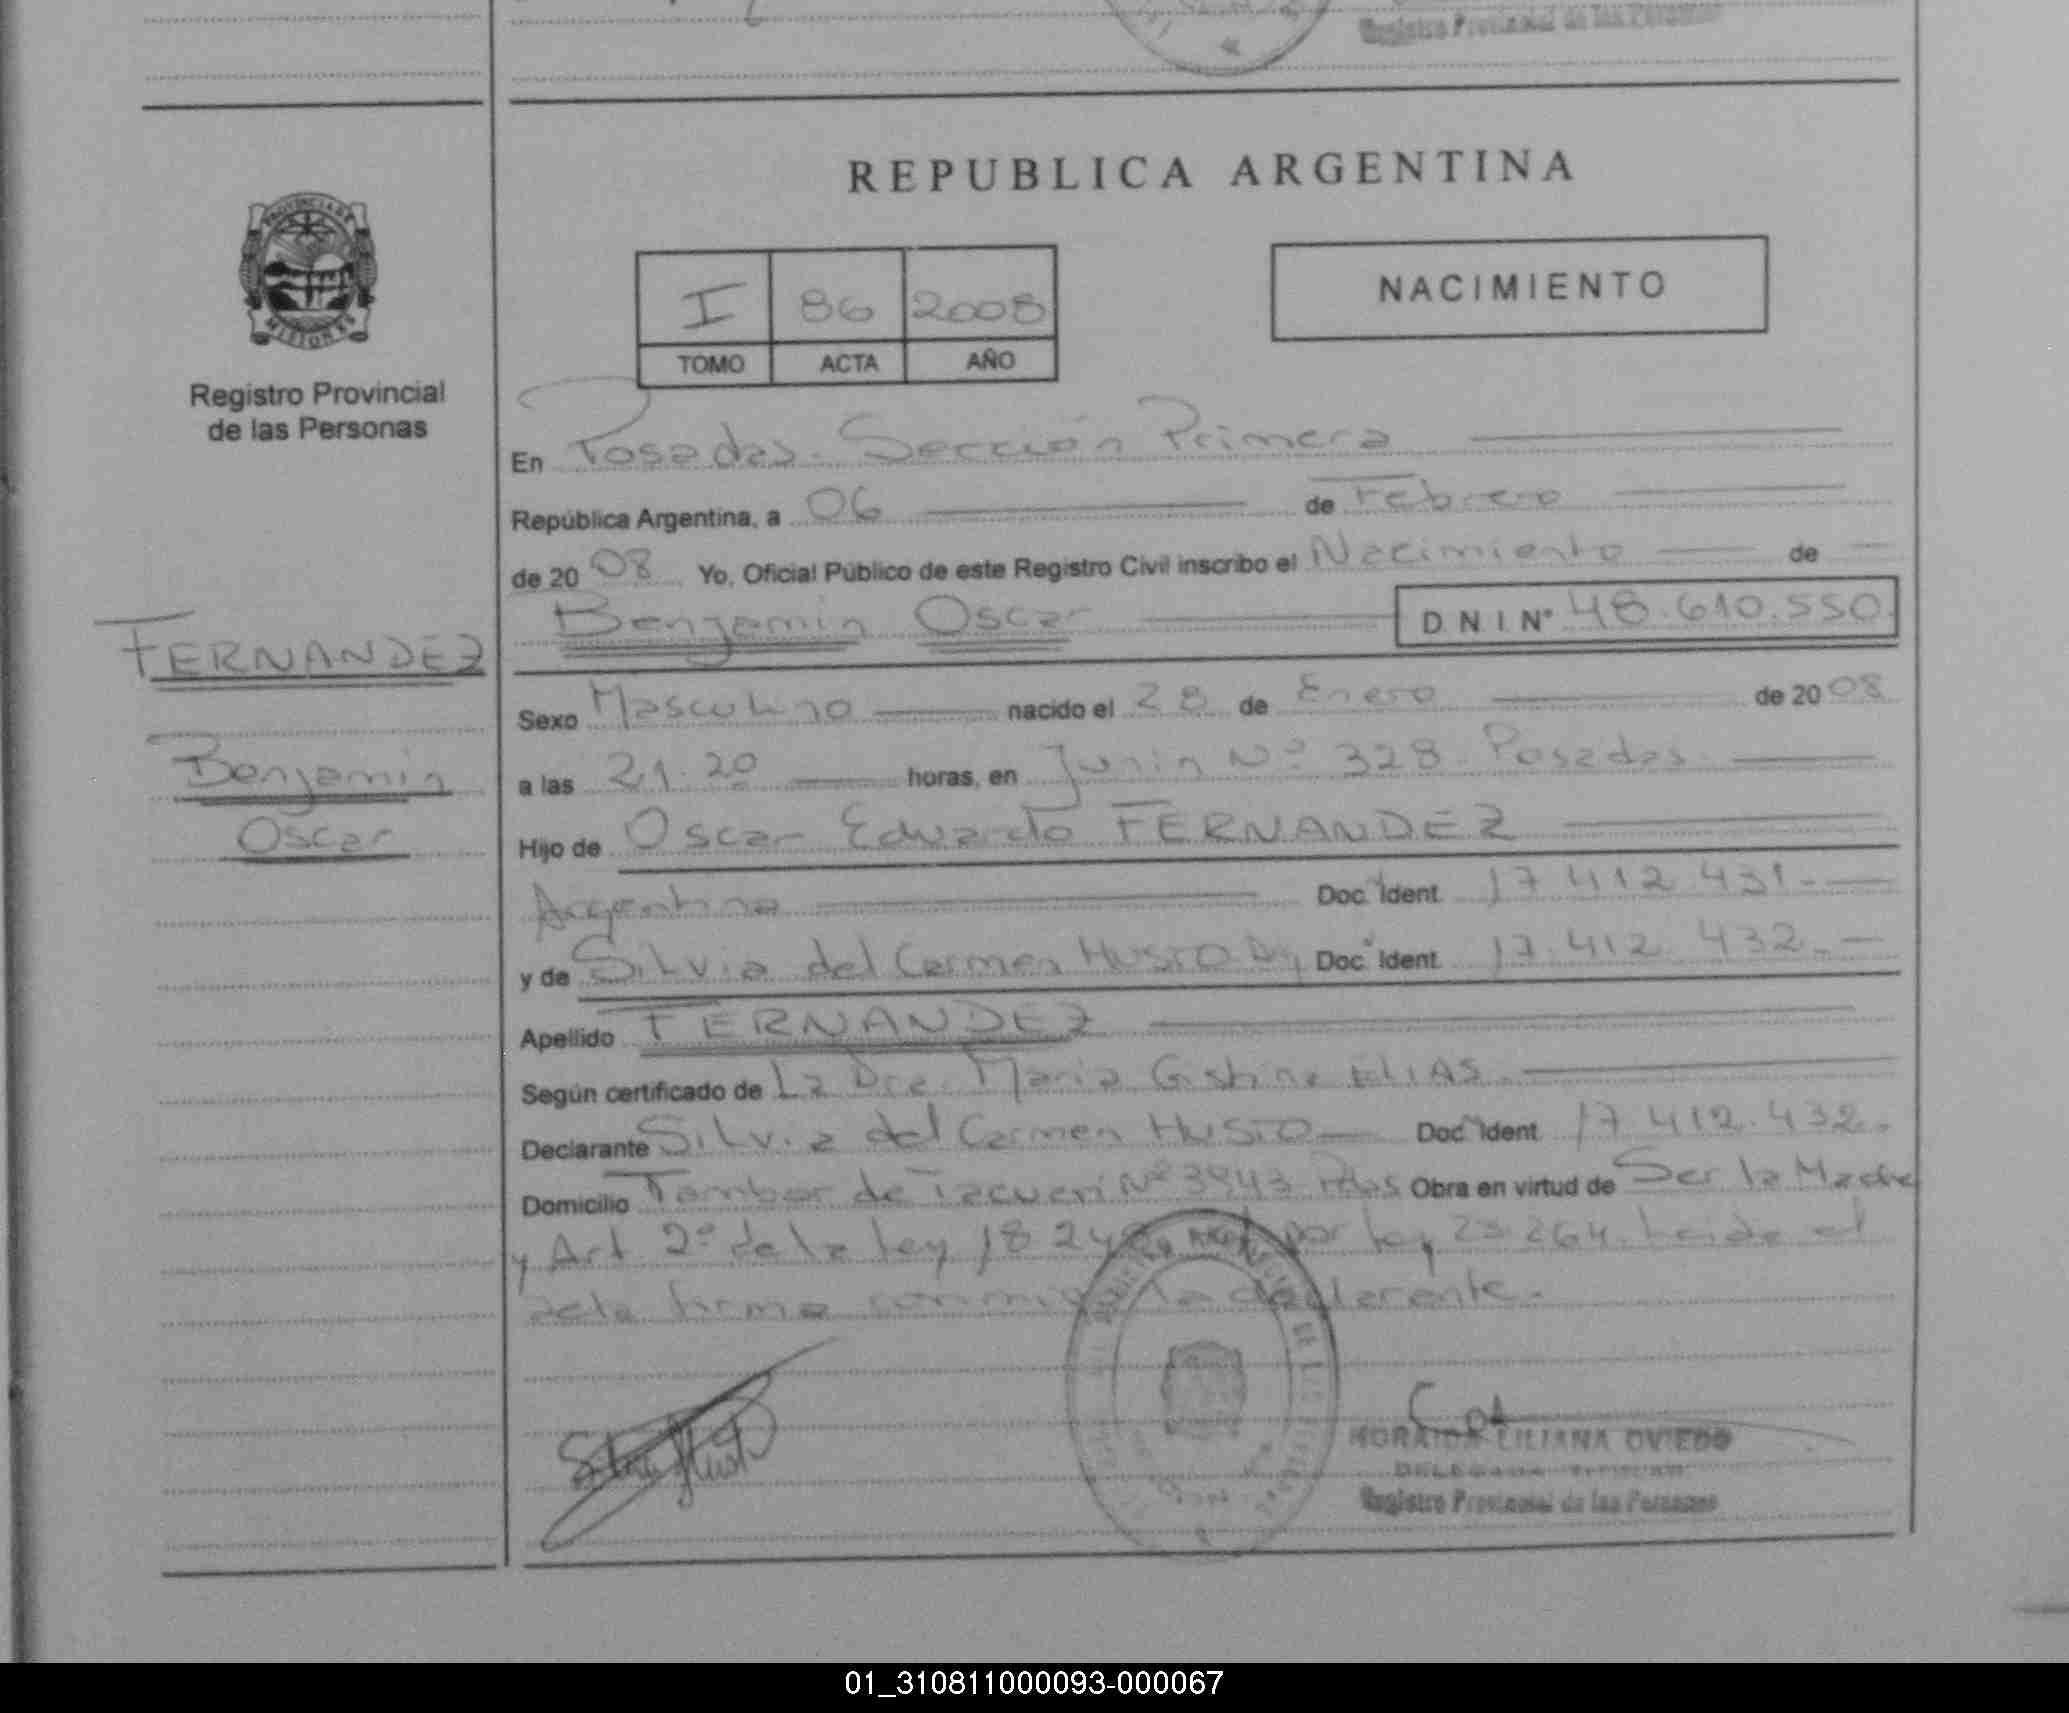 Registro Provincial de las Personas
REPUBLICA ARGENTINA
PROVINCIA DE
MISIONES
Registro Provincial
de las Personas
I 86 2008
TOMO ACTA AÑO
NACIMIENTO
En Posadas. Sección Primera
República Argentina, a 06 de Febrero
de 2008 Yo, Oficial Público de este Registro Civil inscribo el Nacimiento de
Benjamin Oscar D.N.I. Nº 48.610.550.
FERNANDEZ
Benjamin
Oscar
Sexo Masculino nacido el 28 de Enero de 2008
a las 21.20 horas, en Junin Nº 328. Posadas.
Hijo de Oscar Eduardo FERNANDEZ
Argentina Doc. Ident. 17.412.431.-
y de Silvia del Carmen HUSTO Doc. Ident. 17.412.432.-
Apellido FERNANDEZ
Según certificado de La Dra. Maria Cristina ELIAS.
Declarante Silvia del Carmen HUSTO Doc. Ident. 17.412.432.
Domicilio Tambor de Tacuari Nº 3943 Pdas Obra en virtud de Ser la Madre
y Art 2º de la ley 18.248 por ley 23.264. Leida el
acta firma conmigo la declarante.
LILIANA OVIEDO
DELEGADA TITULAR
Registro Provincial de las Personas
01_310811000093-000067